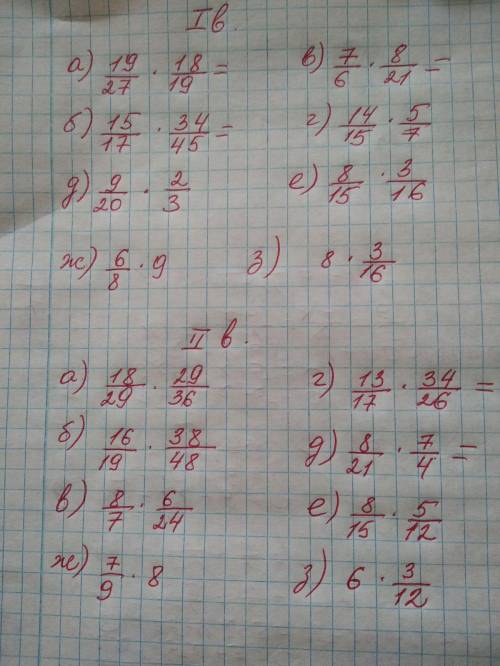 I в.
а) 19/27 · 18/19 = в) 7/6 · 8/21 =
б) 15/17 · 34/45 = г) 14/15 · 5/7
д) 9/20 · 2/3 е) 8/15 · 3/16
ж) 6/8 · 9 з) 8 · 3/16
II в.
а) 18/29 · 29/36 г) 13/17 · 34/26 =
б) 16/19 · 38/48 д) 8/21 · 7/4 =
в) 8/7 · 6/24 е) 8/15 · 5/12
ж) 7/9 · 8 з) 6 · 3/12